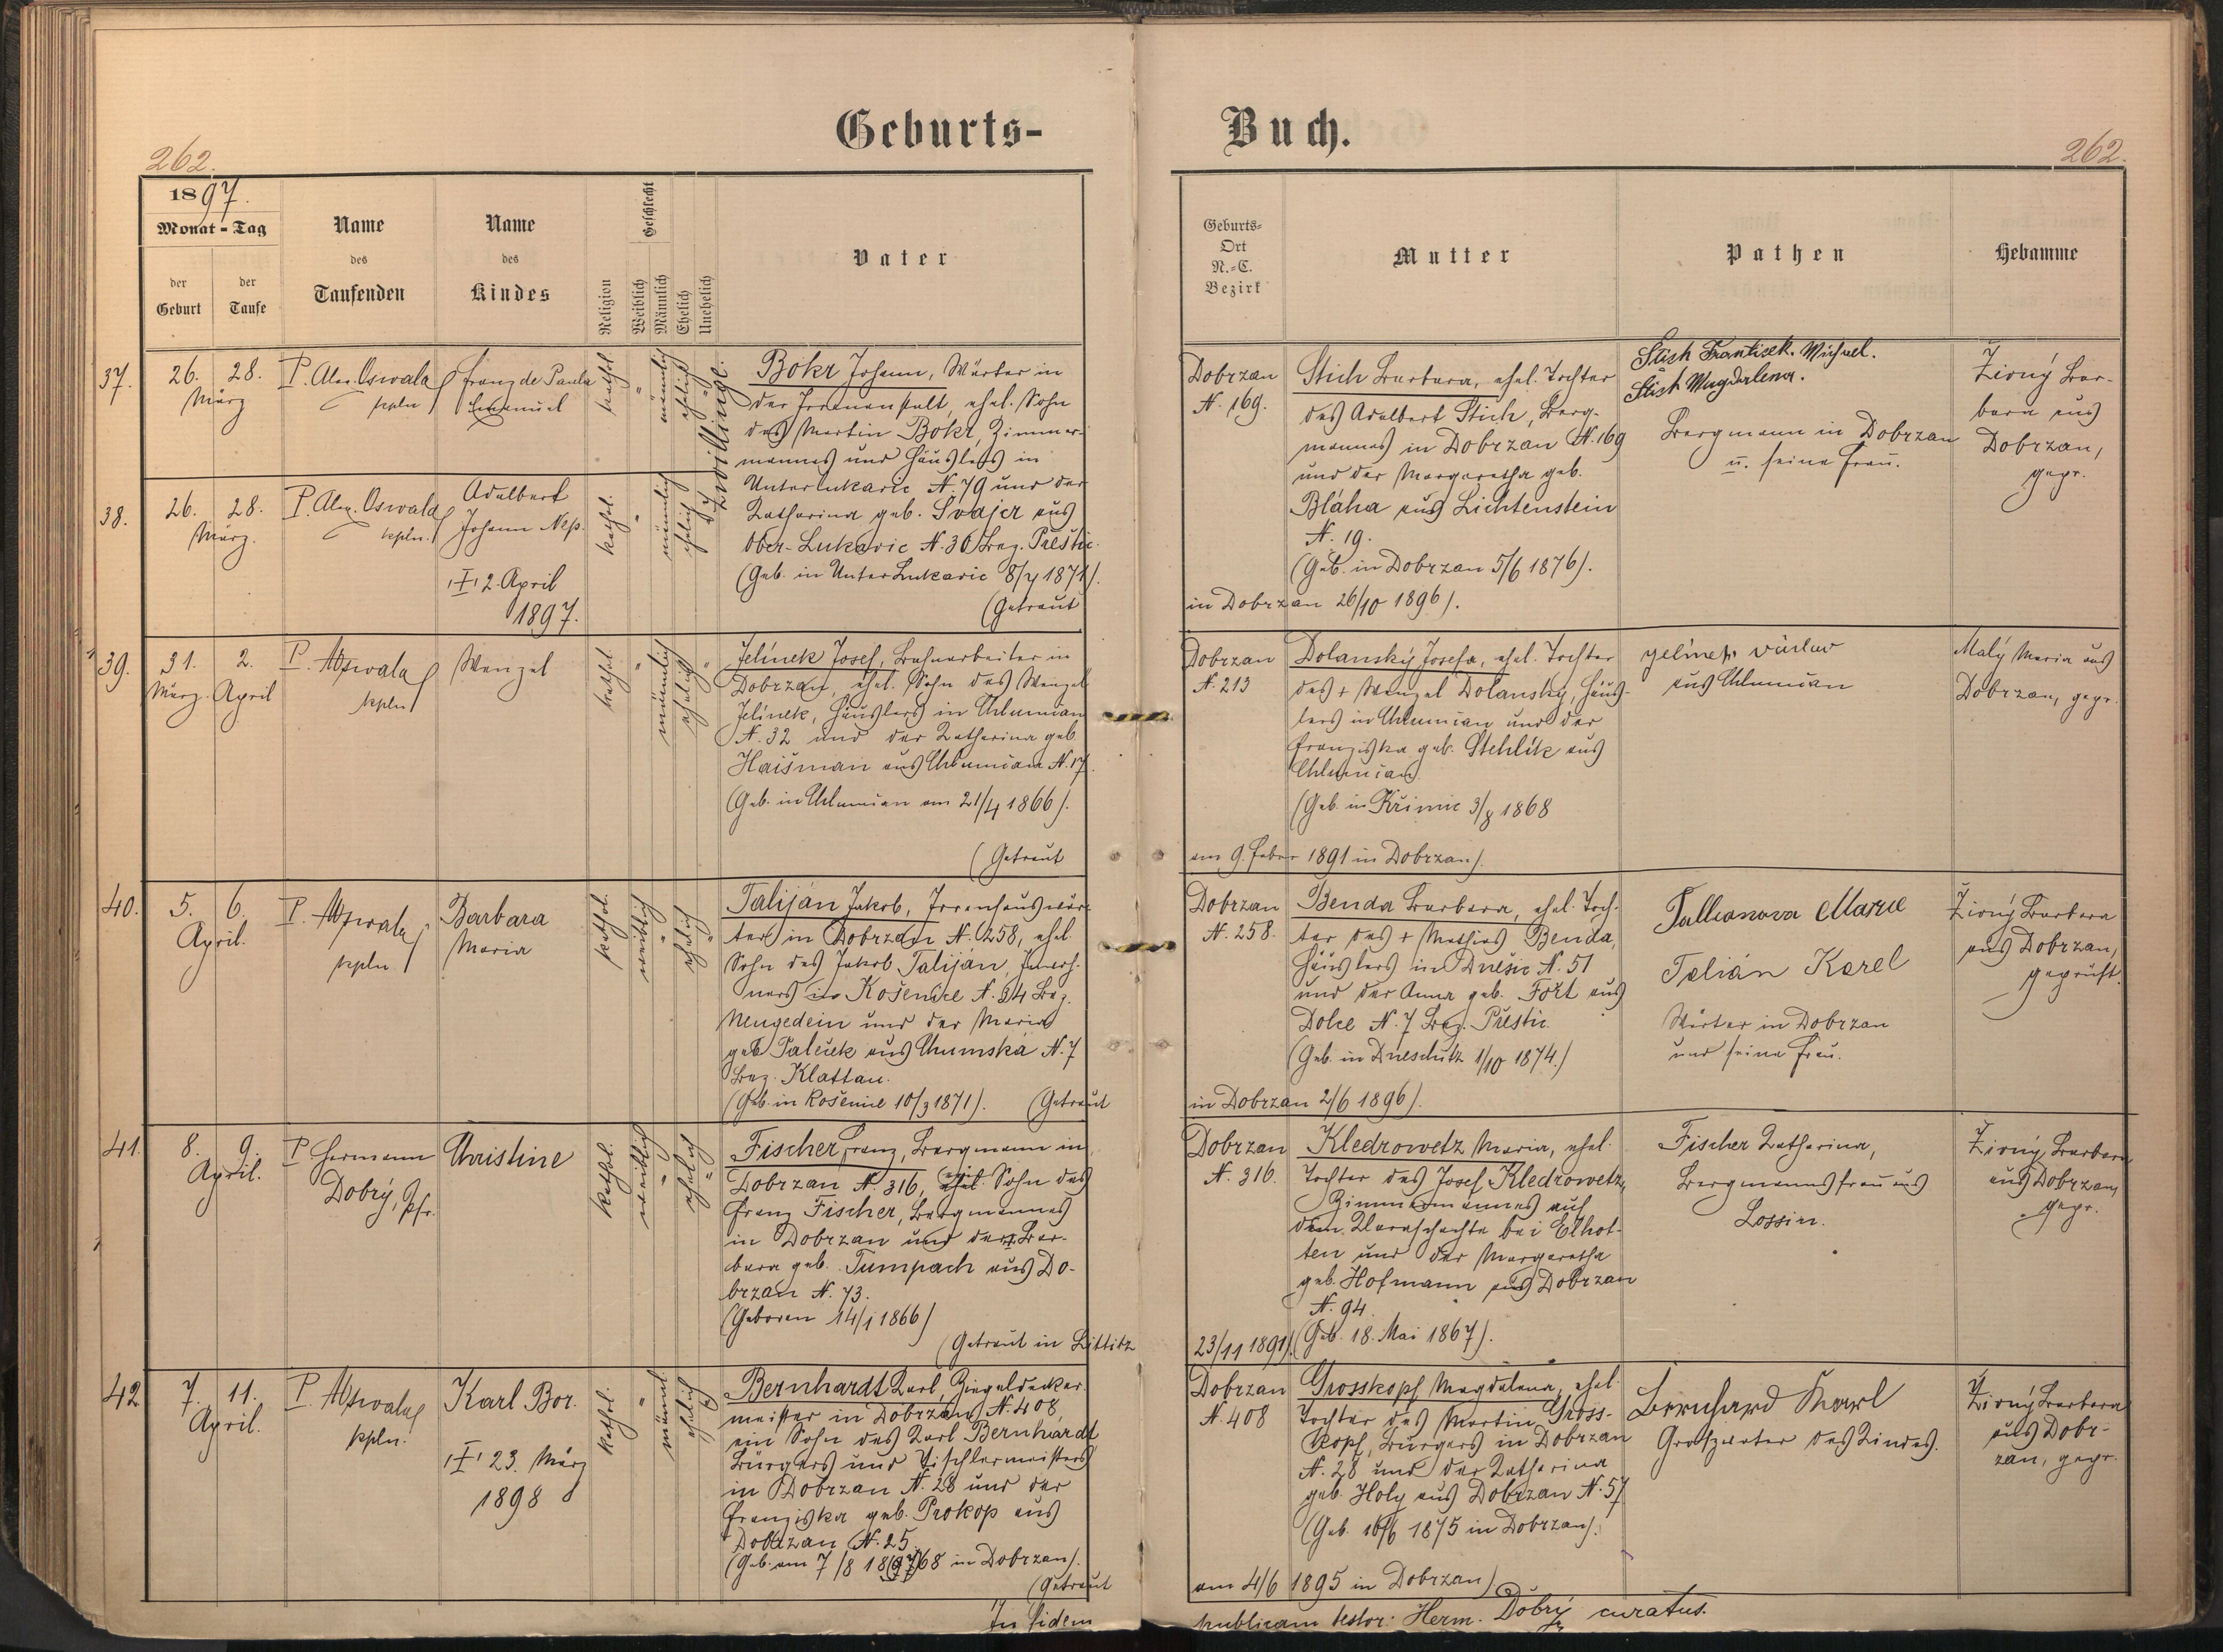 Geburts-
Buch.
262.
262.
1897.
Monat - Tag
der Geburt
der Taufe
Name des Taufenden
Name des Kindes
Religion
Geschlecht
Weiblich
Männlich
Ehelich
Unehelich
Vater
Geburts-
Ort
N.-C.
Bezirk
Mutter
Pathen
Hebamme
37.
26. März
28.
P. Alex. Oswala
kpln
Franz de Paula
Emanuel
kathol
"
männlich
ehelich
"
Zwillinge.
Bokr Johann, Wärter in
der Irrenanstalt, ehel. Sohn
des Martin Bokr, Zimmer-
mannes und Häuslers in
Unterlukavic N. 79 und der
Katharina geb. Svajcr aus
Ober-Lukavic N. 30 Bez. Přeštic.
(Geb. in Unter Lukavic
(Getraut
Dobrzan
N. 169.
Stich Barbara, ehel. Tochter
des Adalbert Stich, Berg-
mannes in Dobrzan N. 169
und der Margaretha geb.
Bláha aus Lichtenstein
N. 19.
(Geb. in Dobrzan 5/6 1876).
in Dobrzan 26/10 1896).
Stich Frantisek. Michael.
Stich Magdalena.
Bergmann in Dobrzan
u. seine Frau.
Žirný Bar-
bara aus
Dobrzan,
gepr.
38.
26. März.
28.
P. Alex. Oswala
kpln.
Adalbert
Johann Nep.
† 2. April
1897.
kathol.
"
männlich
ehelich
39.
31. März.
2. April
P. AOswala
kpln
Wenzel
kathol
"
männlich
ehelich
"
Jelínek Josef, Bahnarbeiter in
Dobrzan, ehel. Sohn des Wenzel
Jelínek, Häuslers in Chlumčan
N. 32 und der Katharina geb
Haišman aus Chlumčan N. 17.
(Geb. in Chlumčan am 21/4 1866).
(Getraut
Dobrzan
N. 213
Dolanský Josefa, ehel. Tochter
des † Wenzel Dolanský, Häus-
lers in Chlumčan und der
Franziska geb. Stehlík aus
Chlumčan.
(Geb. in Křimic 3/8 1868
am 9. Feber 1891 in Dobrzan).
aus Chlumčan
Malý Maria aus
Dobrzan, gepr.
40.
5. April.
6.
P. AOswala
kpln
Barbara
Maria
kathol.
weiblich
"
ehelich
"
Talijàn Jakob, Irrenhauswär-
ter in Dobrzan N. 258, ehel.
Sohn des Jakob Talijàn, Inwoh-
ners in Košenice N. 34 Bez.
Neugedein und der Maria
geb. aus Chumska N. 7
Bez. Klattau.
(Geb. in Košenice 10/3 1871). (Getraut
Dobrzan
N. 258.
Benda Barbara, ehel. Toch-
ter des † Mathias Benda,
Häuslers in Dnešic N. 51
und der Anna geb. Fořt aus
Dolce N. 7 Bez. Přeštic.
(Geb. in Dneschitz 1/10 1874.)
in Dobrzan 2/6 1896).
Tallianova Marie
Talián Karel
Wärter in Dobrzan
und seine Frau.
Žirný Barbara
aus Dobrzan,
geprüft.
41.
8. April.
9.
P. Hermann
Dobrý, Pfr.
Christine
kathol.
weiblich
"
ehelich
"
Fischer Franz, Bergmann in
Dobrzan N. 316, ehel. Sohn des
Franz Fischer, Bergmannes
in Dobrzan und der † Bar-
bara geb. Tumpach aus Do-
brzan N. 73.
(Geboren 14/1 1866)
(Getraut in Littitz
Dobrzan
N. 316.
Kledrowetz Maria, ehel.
Tochter des Josef Kledrowetz,
Zimmermannes auf
dem Klaraschachte bei Elhot-
ten und der Margaretha
geb. Hofmann aus Dobrzan
N. 94.
(Geb. 18. Mai 1867).
23/11 1891).
Fischer Katharina,
Bergmannsfrau aus
Lossin.
Žirný Barbara
aus Dobrzan,
gepr.
42.
7. April.
11.
P. AOswala
kpln.
Karl Bor.
† 23. März
1898
kathol.
"
männl.
ehelich
Bernhardt Karl, Ziegeldecker-
meister in Dobrzan N. 408,
ein Sohn des Karl Bernhardt
Bürgers und Tischlermeisters
in Dobrzan N. 28 und der
Franziska geb. Prokop aus
Dobrzan N. 25.
(Geb. am 7/8 1868 in Dobrzan).
(Getraut
Dobrzan
N. 408
Grosskopf Magdalena, ehel.
Tochter des Martin Gross-
kopf, Bürgers in Dobrzan
N. 28 und der Katharina
geb. Holy aus Dobrzan N. 57
(Geb. 1875 in Dobrzan).
am 4/6 1895 in Dobrzan)
Bernhard Karl
Großvater des Kindes.
Žirný Barbara
aus Dobr-
zan, gepr.
In fidem
publicam testor: Herm. Dobrý curatus.